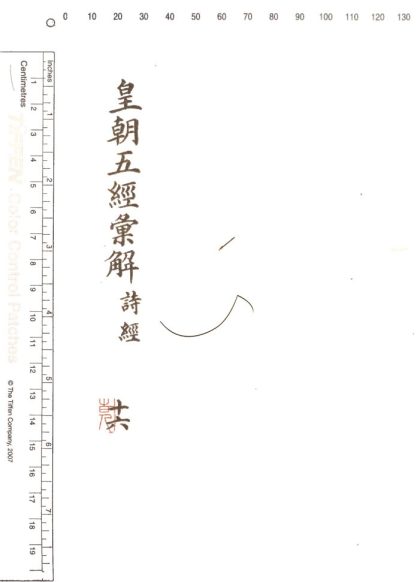 0 10 20 30 40 50 60 70 80 90 100 110 120 130
皇朝五經彙解 詩經
十六
Inches 1 2 3 4 5 6 7
Centimetres 1 2 3 4 5 6 7 8 9 10 11 12 13 14 15 16 17 18 19
TIFFEN Color Control Patches
© The Tiffen Company, 2007